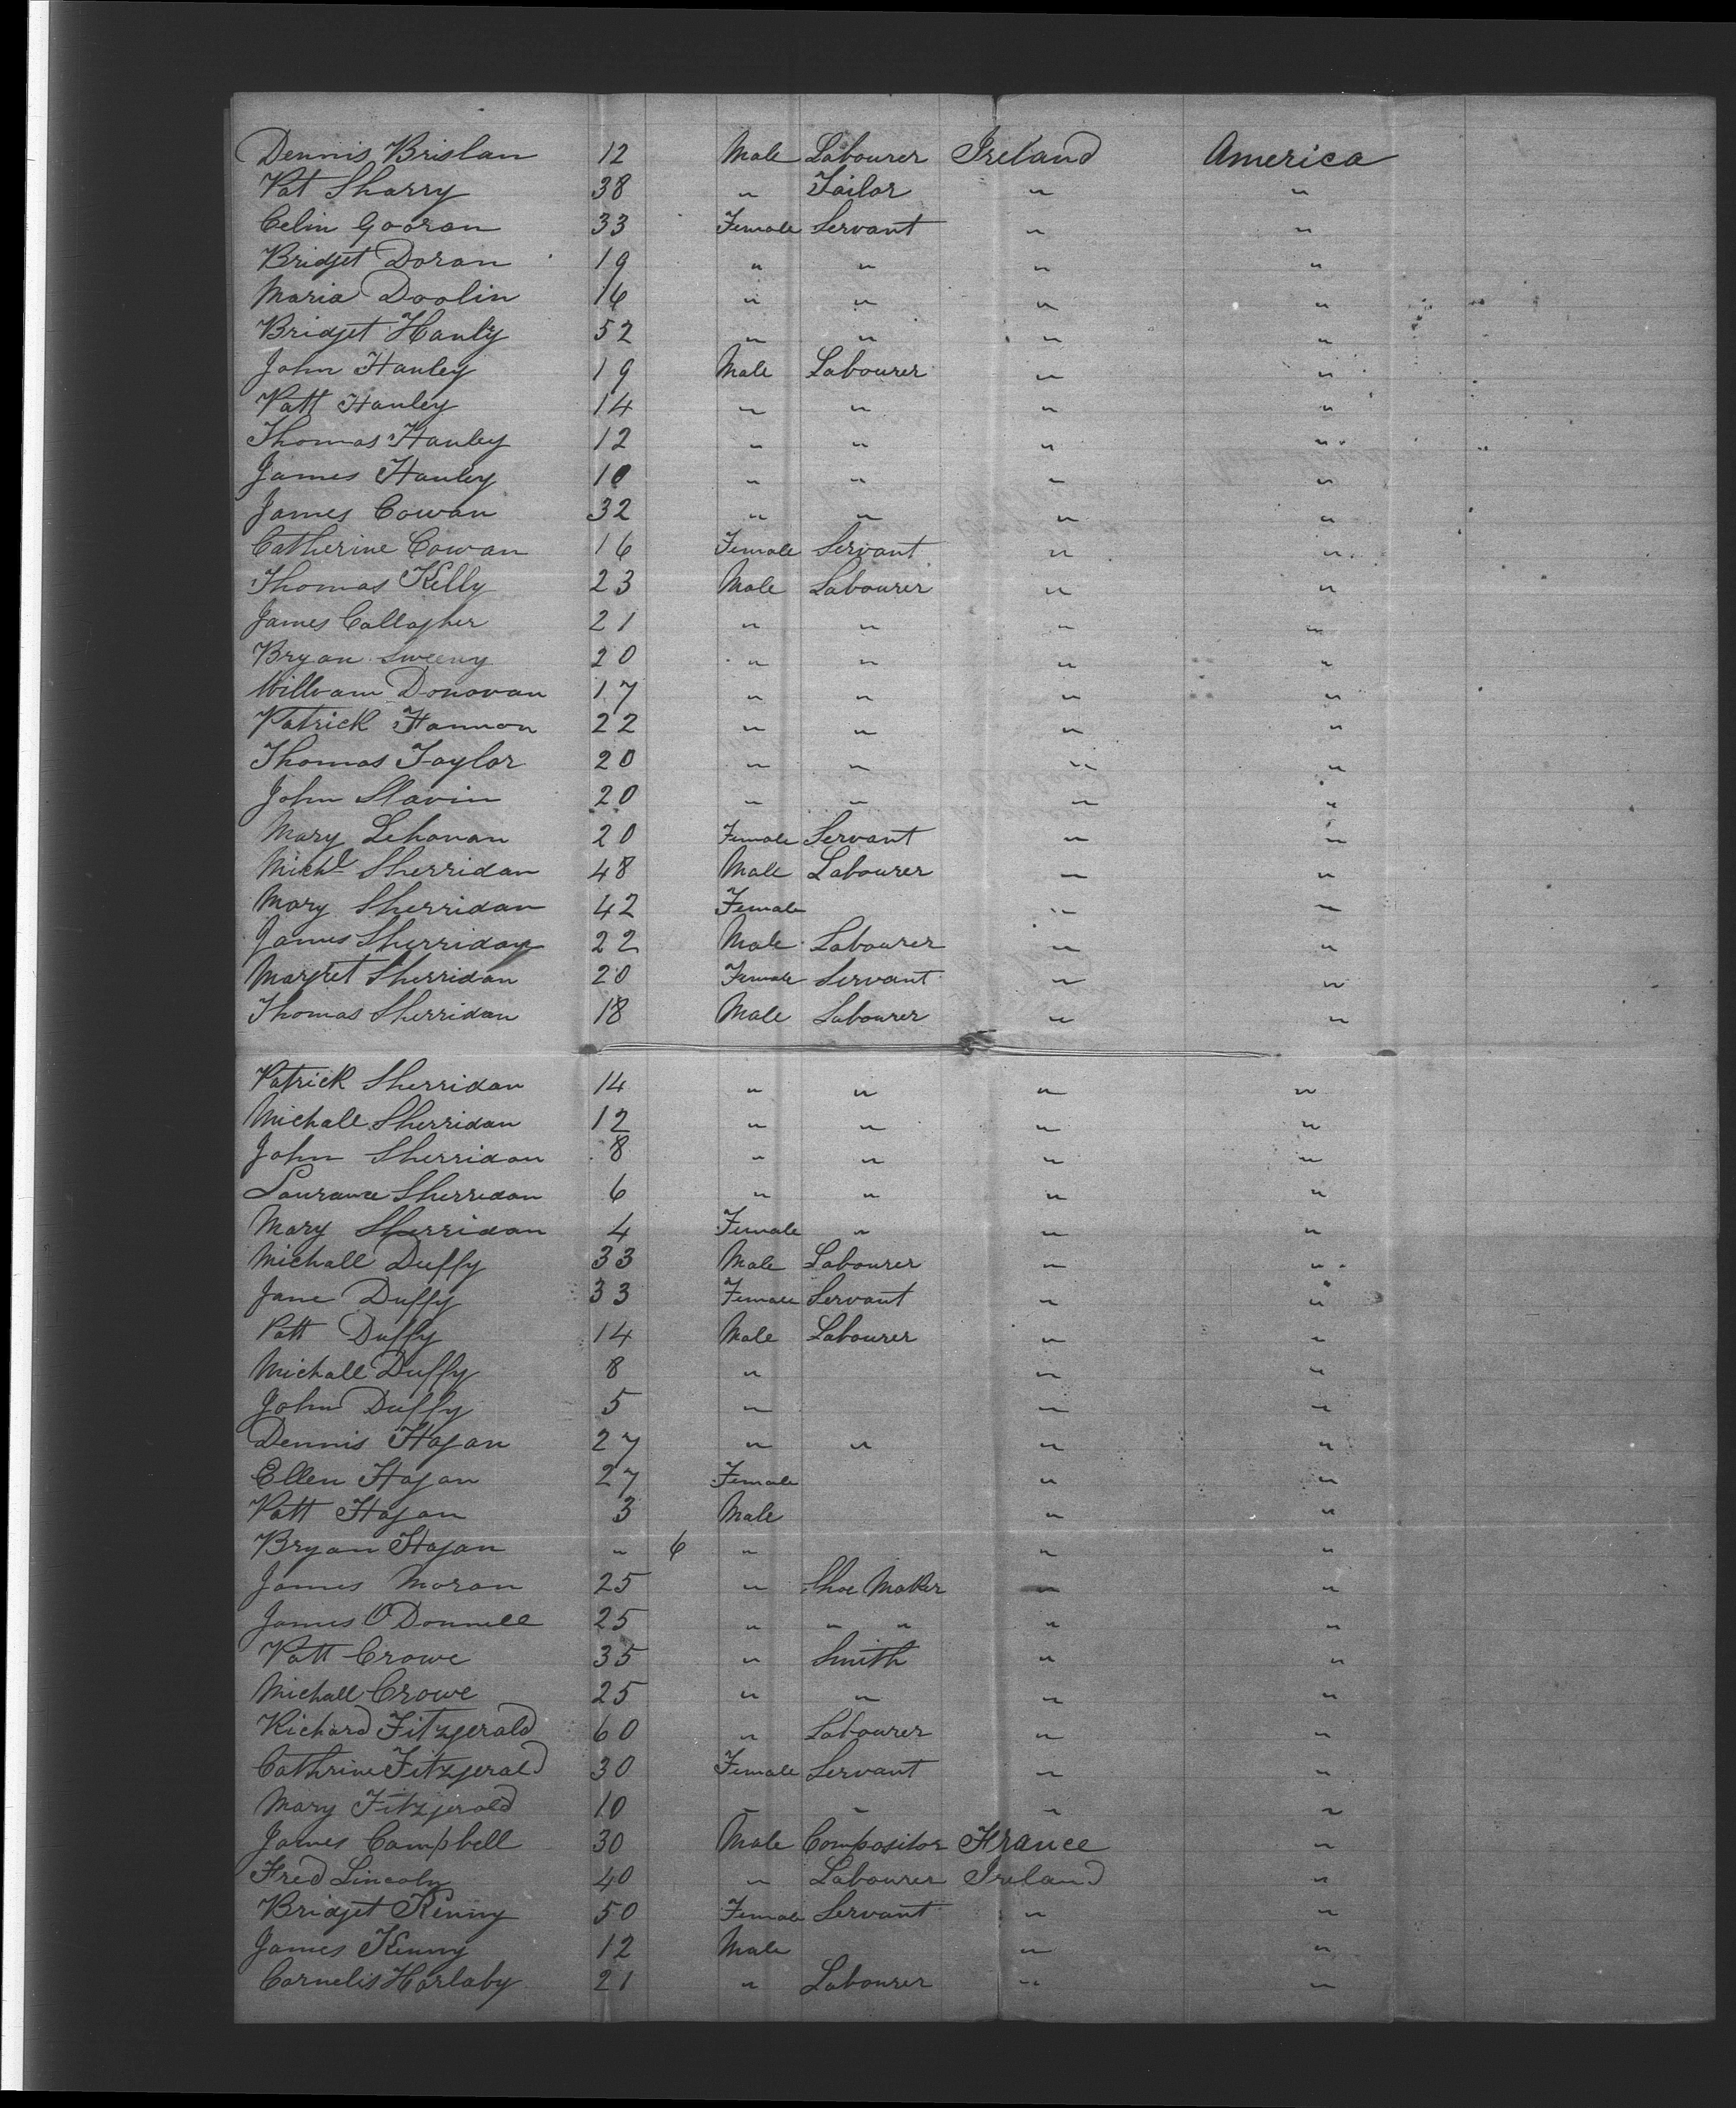 Dennis Brislan 12 Male Labourer Ireland America
Pat Sharry 38 " Tailor " "
Celin Gooran 33 Female Servant " "
Bridget Doran 19 " " " "
Maria Doolin 16 " " " "
Bridget Hanly 52 " " " "
John Hanley 19 Male Labourer " "
Patt Hanley 14 " " " "
Thomas Hanley 12 " " " "
James Hanley 10 " " " "
James Cowan 32 " " " "
Catherine Cowan 16 Female Servant " "
Thomas Kelly 23 Male Labourer " "
James Callagher 21 " " " "
Bryan Sweeny 20 " " " "
William Donovan 17 " " " "
Patrick Hannon 22 " " " "
Thomas Taylor 20 " " " "
John Slavin 20 " " " "
Mary Lehonan 20 Female Servant " "
Michl Sherridan 48 Male Labourer " "
Mary Sherridan 42 Female " "
James Sherridan 22 Male Labourer " "
Margret Sherridan 20 Female Servant " "
Thomas Sherridan 18 Male Labourer " "
Patrick Sherridan 14 " " " "
Michall Sherridan 12 " " " "
John Sherridan 8 " " " "
Laurance Sherridan 6 " " " "
Mary Sherridan 4 Female " " "
Michall Duffy 33 Male Labourer " "
Jane Duffy 33 Female Servant " "
Patt Duffy 14 Male Labourer " "
Michall Duffy 8 " " "
John Duffy 5 " " "
Dennis Hagan 27 " " " "
Ellen Hagan 27 Female " "
Patt Hagan 3 Male " "
Bryan Hagan " 6 " " "
James Moran 25 " Shoe Maker " "
James O'Donnell 25 " " " " "
Patt Crowe 35 " Smith " "
Michall Crowe 25 " " " "
Richard Fitzgerald 60 " Labourer " "
Cathrine Fitzgerald 30 Female Servant " "
Mary Fitzgerald 10 " " " "
James Campbell 30 Male Compositor France "
Fred Lincoln 40 " Labourer Ireland "
Bridget Kenny 50 Female Servant " "
James Kenny 12 Male " "
Cornelis Harlaby 21 " Labourer " "